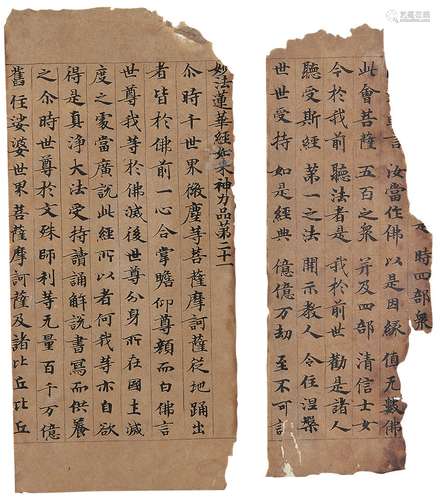 時四部衆
言 汝當作佛 以是因緣 值无數佛
此會菩薩 五百之衆 并及四部 清信士女
今於我前 聽法者是 我於前世 勸是諸人
聽受斯經 第一之法 開示教人 令住涅槃
世世受持 如是經典 億億万劫 至不可議
妙法蓮華經如来神力品第二十一
尒時千世界微塵等菩薩摩訶薩從地踊出
者皆於佛前一心合掌瞻仰尊顏而白佛言
世尊我等於佛滅後世尊分身所在國土滅
度之處當廣說此經所以者何我等亦自欲
得是真淨大法受持讀誦解說書寫而供養
之尒時世尊於文殊師利等无量百千万億
舊住娑婆世界菩薩摩訶薩及諸比丘比丘